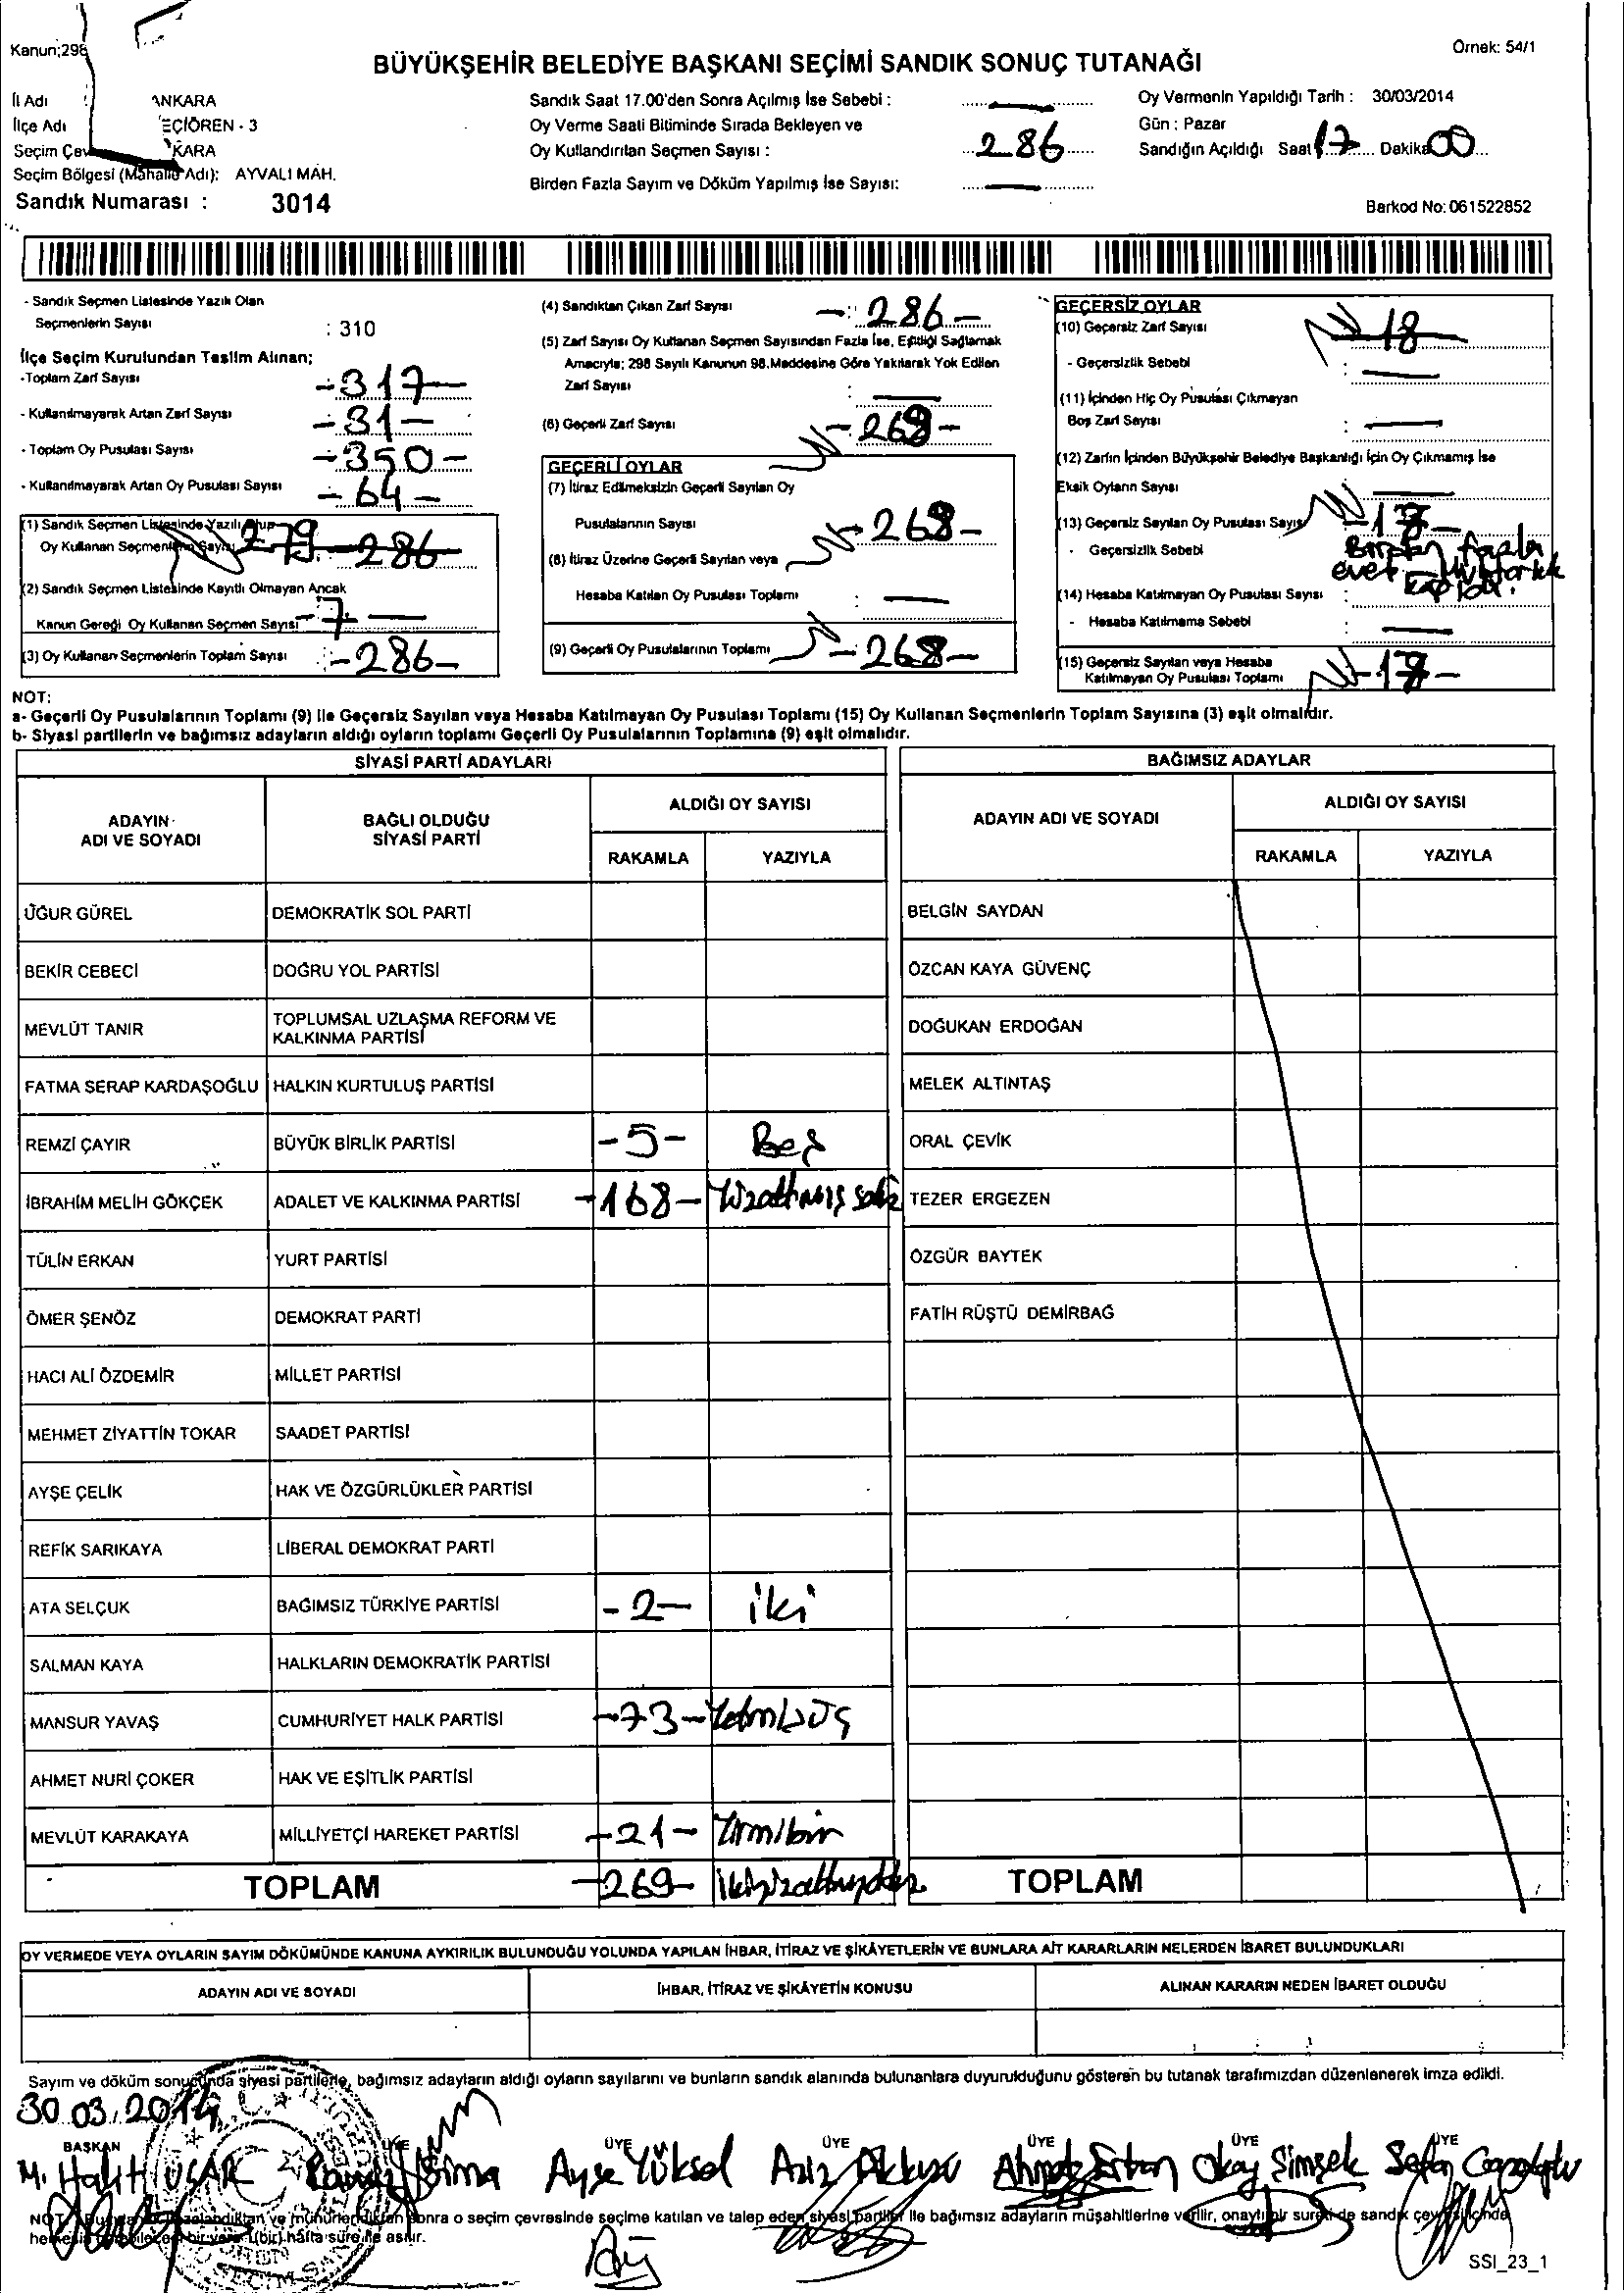 Kanun;298
Örnek: 54/1
BÜYÜKŞEHİR BELEDİYE BAŞKANI SEÇİMİ SANDIK SONUÇ TUTANAĞI
İl Adı : ANKARA
İlçe Adı EÇİÖREN - 3
Seçim Çev KARA
Seçim Bölgesi (Mahalle Adı): AYVALI MAH.
Sandık Numarası : 3014
Sandık Saat 17.00'den Sonra Açılmış İse Sebebi : —
Oy Verme Saati Bitiminde Sırada Bekleyen ve
Oy Kullandırılan Seçmen Sayısı : 286
Birden Fazla Sayım ve Döküm Yapılmış İse Sayısı: —
Oy Vermenin Yapıldığı Tarih : 30/03/2014
Gün : Pazar
Sandığın Açıldığı Saat 17 Dakika 00
Barkod No: 061522852
- Sandık Seçmen Listesinde Yazılı Olan
Seçmenlerin Sayısı : 310
İlçe Seçim Kurulundan Teslim Alınan;
-Toplam Zarf Sayısı -317-
- Kullanılmayarak Artan Zarf Sayısı -31-
- Toplam Oy Pusulası Sayısı -350-
- Kullanılmayarak Artan Oy Pusulası Sayısı -64-
(1) Sandık Seçmen Listesinde Yazılı Olup
Oy Kullanan Seçmenlerin Sayısı 279 -286
(2) Sandık Seçmen Listesinde Kayıtlı Olmayan Ancak
Kanun Gereği Oy Kullanan Seçmen Sayısı -7-
(3) Oy Kullanan Seçmenlerin Toplam Sayısı :-286-
(4) Sandıktan Çıkan Zarf Sayısı -: 286-
(5) Zarf Sayısı Oy Kullanan Seçmen Sayısından Fazla İse, Eşitliği Sağlamak
Amacıyla; 298 Sayılı Kanunun 98.Maddesine Göre Yakılarak Yok Edilen
Zarf Sayısı : —
(6) Geçerli Zarf Sayısı -268-
GEÇERLİ OYLAR
(7) İtiraz Edilmeksizin Geçerli Sayılan Oy
Pusulalarının Sayısı -268-
(8) İtiraz Üzerine Geçerli Sayılan veya
Hesaba Katılan Oy Pusulası Toplamı : —
(9) Geçerli Oy Pusulalarının Toplamı -268-
GEÇERSİZ OYLAR
(10) Geçersiz Zarf Sayısı 18
- Geçersizlik Sebebi : —
(11) İçinden Hiç Oy Pusulası Çıkmayan
Boş Zarf Sayısı : —
(12) Zarfın İçinden Büyükşehir Belediye Başkanlığı İçin Oy Çıkmamış İse
Eksik Oyların Sayısı —
(13) Geçersiz Sayılan Oy Pusulası Sayısı
- Geçersizlik Sebebi Birden fazla
evet
(14) Hesaba Katılmayan Oy Pusulası Sayısı :
- Hesaba Katılmama Sebebi : —
(15) Geçersiz Sayılan veya Hesaba
Katılmayan Oy Pusulası Toplamı
NOT:
a- Geçerli Oy Pusulalarının Toplamı (9) ile Geçersiz Sayılan veya Hesaba Katılmayan Oy Pusulası Toplamı (15) Oy Kullanan Seçmenlerin Toplam Sayısına (3) eşit olmalıdır.
b- Siyasi partilerin ve bağımsız adayların aldığı oyların toplamı Geçerli Oy Pusulalarının Toplamına (9) eşit olmalıdır.
SİYASİ PARTİ ADAYLARI
ADAYIN ADI VE SOYADI
BAĞLI OLDUĞU SİYASİ PARTİ
ALDIĞI OY SAYISI
RAKAMLA YAZIYLA
UĞUR GÜREL DEMOKRATİK SOL PARTİ
BEKİR CEBECİ DOĞRU YOL PARTİSİ
MEVLÜT TANIR TOPLUMSAL UZLAŞMA REFORM VE
KALKINMA PARTİSİ
FATMA SERAP KARDAŞOĞLU HALKIN KURTULUŞ PARTİSİ
REMZİ ÇAYIR BÜYÜK BİRLİK PARTİSİ -5- Beş
İBRAHİM MELİH GÖKÇEK ADALET VE KALKINMA PARTİSİ -168- Yüzaltmış sekiz
TÜLİN ERKAN YURT PARTİSİ
ÖMER ŞENÖZ DEMOKRAT PARTİ
HACI ALİ ÖZDEMİR MİLLET PARTİSİ
MEHMET ZİYATTİN TOKAR SAADET PARTİSİ
AYŞE ÇELİK HAK VE ÖZGÜRLÜKLER PARTİSİ
REFİK SARIKAYA LİBERAL DEMOKRAT PARTİ
ATA SELÇUK BAĞIMSIZ TÜRKİYE PARTİSİ -2- iki
SALMAN KAYA HALKLARIN DEMOKRATİK PARTİSİ
MANSUR YAVAŞ CUMHURİYET HALK PARTİSİ -73- Yetmişüç
AHMET NURİ ÇOKER HAK VE EŞİTLİK PARTİSİ
MEVLÜT KARAKAYA MİLLİYETÇİ HAREKET PARTİSİ -21- Yirmibir
TOPLAM -269- ikiyüzaltmışdokuz
BAĞIMSIZ ADAYLAR
ADAYIN ADI VE SOYADI
ALDIĞI OY SAYISI
RAKAMLA YAZIYLA
BELGİN SAYDAN
ÖZCAN KAYA GÜVENÇ
DOĞUKAN ERDOĞAN
MELEK ALTINTAŞ
ORAL ÇEVİK
TEZER ERGEZEN
ÖZGÜR BAYTEK
FATİH RÜŞTÜ DEMİRBAĞ
TOPLAM
OY VERMEDE VEYA OYLARIN SAYIM DÖKÜMÜNDE KANUNA AYKIRILIK BULUNDUĞU YOLUNDA YAPILAN İHBAR, İTİRAZ VE ŞİKÂYETLERİN VE BUNLARA AİT KARARLARIN NELERDEN İBARET BULUNDUKLARI
ADAYIN ADI VE SOYADI İHBAR, İTİRAZ VE ŞİKÂYETİN KONUSU ALINAN KARARIN NEDEN İBARET OLDUĞU
Sayım ve döküm sonucunda siyasi partilerle, bağımsız adayların aldığı oyların sayılarını ve bunların sandık alanında bulunanlara duyurulduğunu gösteren bu tutanak tarafımızdan düzenlenerek imza edildi.
30.03.2014
BAŞKAN ÜYE ÜYE ÜYE ÜYE ÜYE ÜYE
M. Halit UÇAR Ayşe Yüksel Aziz Akkuzu Ahmet Ertan Okay Şimşek
NOT: düzenlendikten ve mühürlendikten sonra o seçim çevresinde seçime katılan ve talep eden siyasi partiler ile bağımsız adayların müşahitlerine verilir, onaylı bir sureti de sandık çevresi içinde
herkesin görebileceği bir yere 1(bir) hafta süre ile asılır.
SSI_23_1